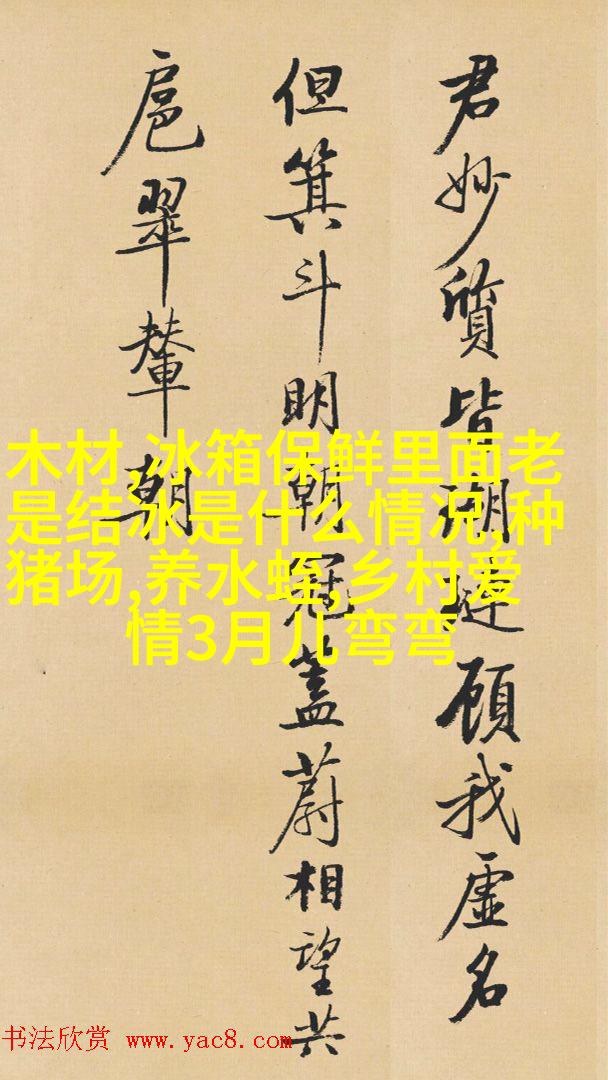 君妙質皆瑚璉顧我虛名
但箕斗明朝冠蓋蔚相望共
扈翠輦朝
木材,冰箱保鲜里面老
是结冰是什么情况,种
猪场,养水蛭,乡村爱
情3月儿弯弯
书法欣赏 www.yac8.com